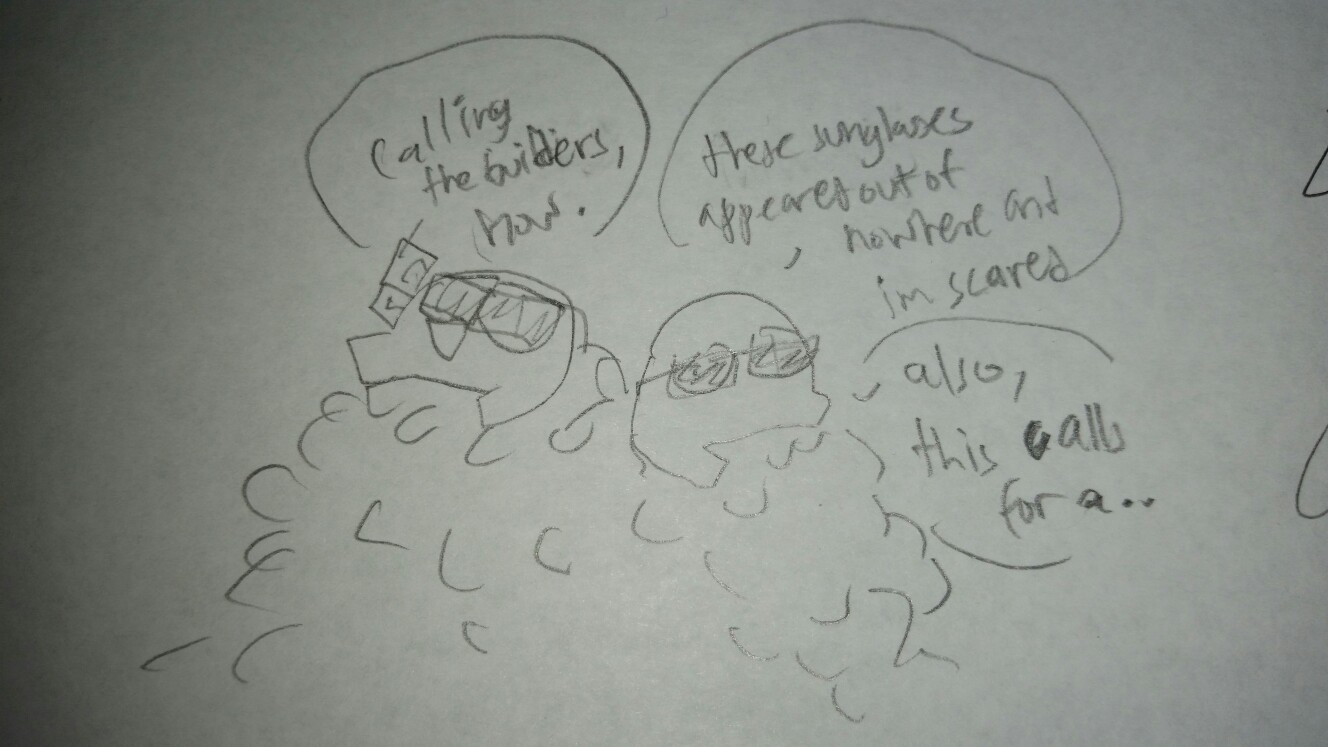 Calling
the builders,
now.
these sunglases
appeared out of
nowhere and
im scared
also,
this calls
for a..